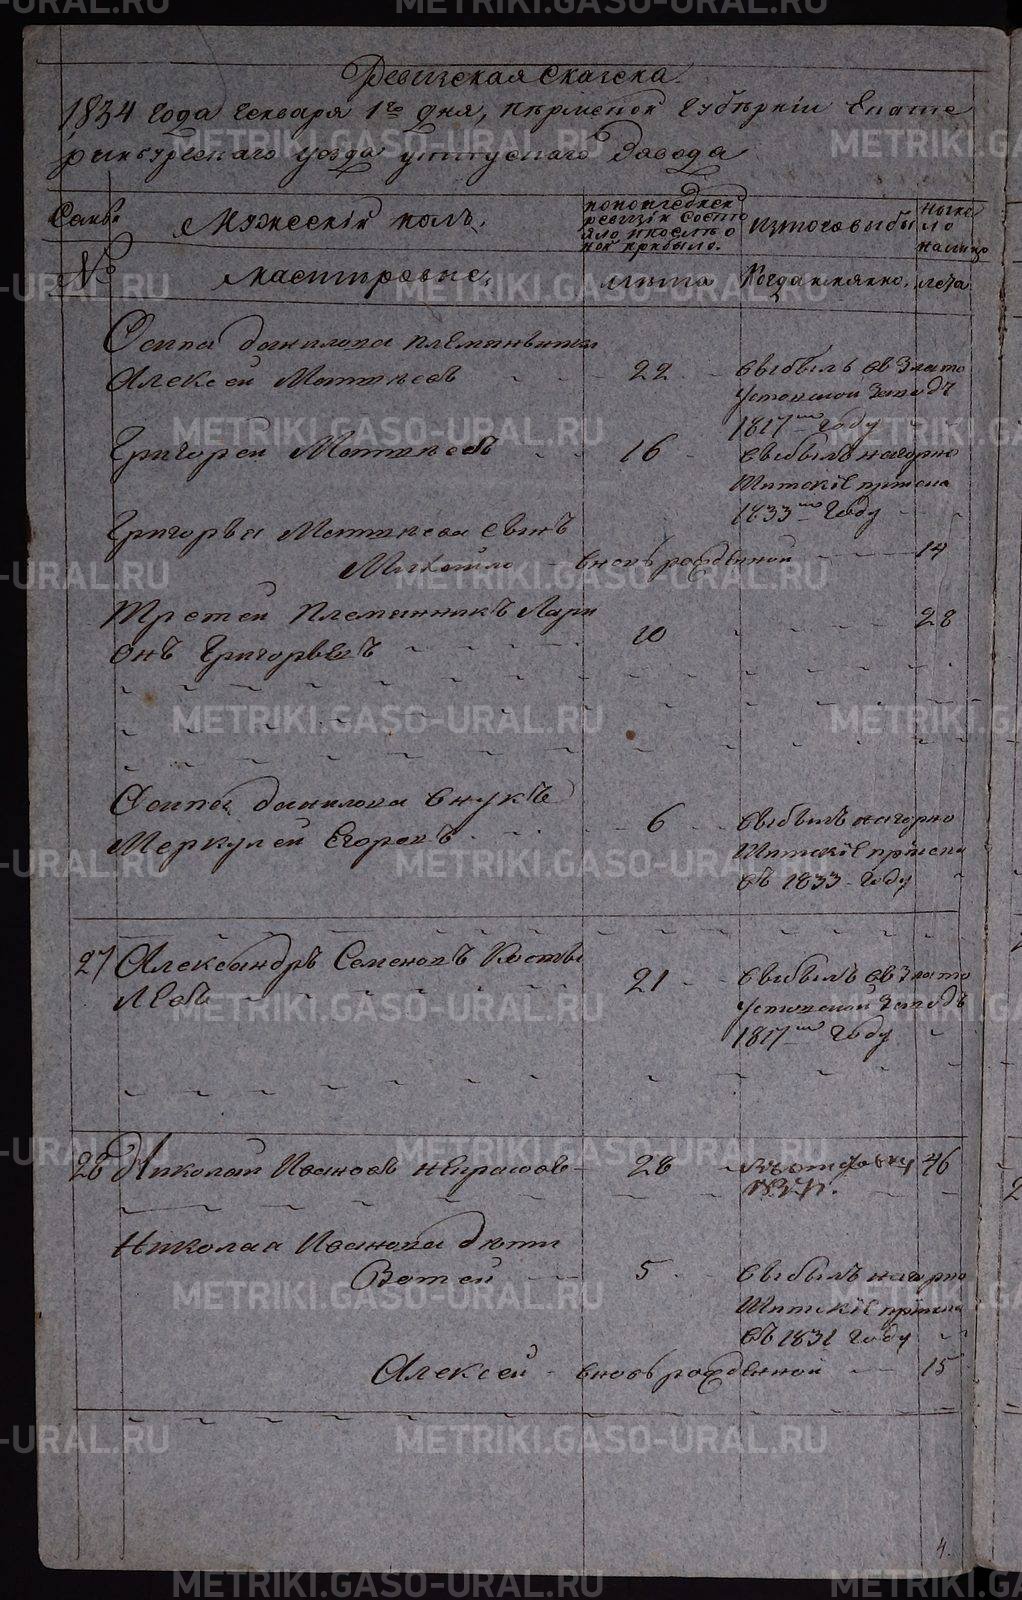 Ревизская Скаска.
1834 года генваря 1го дня, пермской губернии Екате
ринбургскаго уезда уткускаго завода
Семьи
Мужеский полъ.
попоследней
ревизiи состо
яло ипосле о
ной прибыло.
Изтого выбы
ныне
ло
налицо
№
мастировые.
лета
Когда имянно.
лета
Осипа данилова племянники
Алексей Матвеевъ 22 выбылъ въ Злато
устовской заводъ
1817мъ году
Григорей Матвеевъ 16 выбылъ нагорно
Щитскiе прiиска
1833мъ году
Григорья Матвеева сынъ
Михайло вновьрожденной 14
Третей племянникъ Лари
онъ Григорьевъ 10 28
Осипа данилова внукъ
Меркулей Егоровъ 6 выбылъ нагорно
Щитскiе прiиска
въ 1833 году
27 Александръ Семеновъ Косты
левъ 21 выбылъ въ Злато
устовской заводъ
1817мъ году
28 Николай Ивановъ Некрасовъ 28 46
Николая Иванова дети
Фотей 5 выбылъ нагорно
Щитскiе прiиска
въ 1831 году
Алексей вновьрожденной 15
4.
METRIKI.GASO-URAL.RU